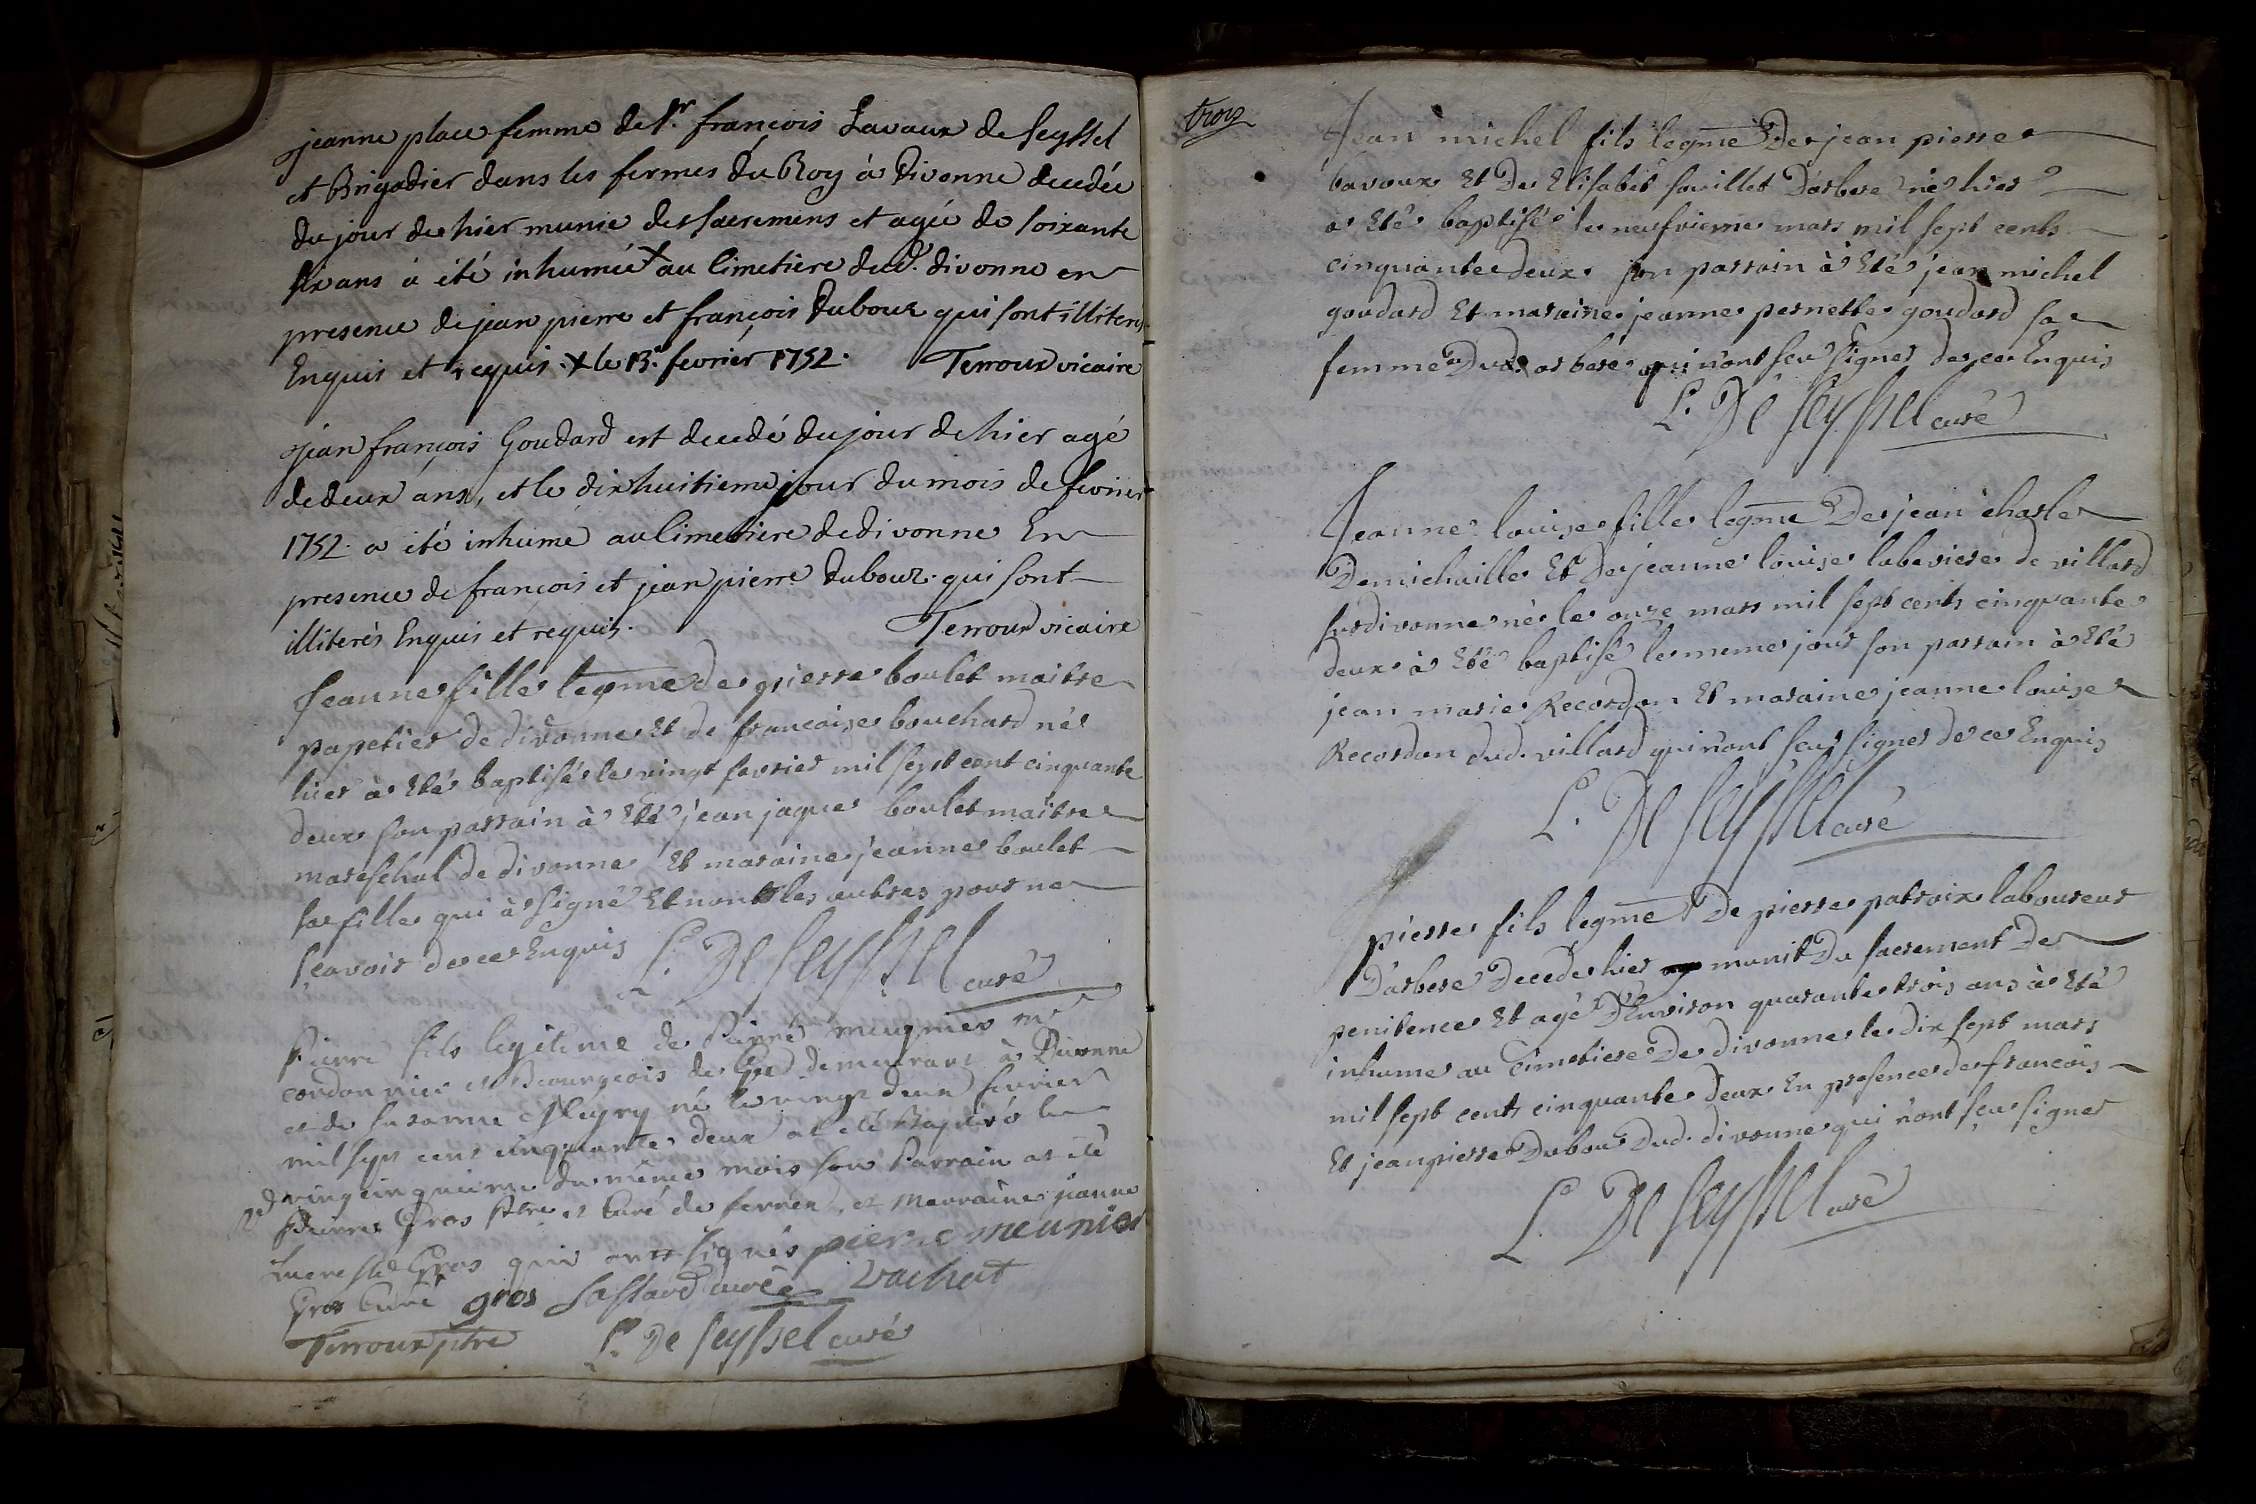 jeanne place femme de Sr. françois Lavaux de Seyssel
et Brigadier dans les fermes du Roy à Divonne decedée
du jour de hier munie des sacremens et agée de soixante
six ans à été inhumée + au Cimetiere dud. divonne en
presence de jean pierre et françois Dubouz qui sont illiterés
Enquis et requis. + le 13e. fevrier 1752. Terroux vicaire
jean françois Goudard est decedé du jour de hier agé
de deux ans, et le dixhuitieme jour du mois de fevrier
1752. a été inhumé au Cimetiere de divonne En
presence de françois et jean pierre Dubouz. qui sont
illiterés Enquis et requis. Terroux vicaire
Jeanne fille legme de pierre boulet maitre
papetier de divonne Et de francoise bouchard née
hier à Eté baptisée le vingt fevrier mil sept cent cinquante
deux son parrain à Eté jean jaque boulet maitre
mareschal de divonne Et maraine jeanne boulet
sa fille qui à signé Et non les autres pour ne
sçavoir de ce Enquis L. De Seyssel curé
Pierre fils legitime de Pierre meugnier me
cordonnier et Bourgeois de Gex demeurant à Divonne
et de Susanne née le vingt deux fevrier
mil sept cent cinquante deux at eté Baptisé le
vingcinquieme du même mois son Parrain at eté
Pierre Gros Ptre et Curé de , et Marraine jeanne
Gros qui ont signés pierre meunier
Gros Curé gros curé vachat
Terroux ptre L. De Seyssel curé
trois
Jean michel fils legme De jean pierre
bavoux Et De Elisabet fouillet D'arbere né hier
a Eté baptisé le neufvieme mars mil sept cents
cinquante deux son parrain à Eté jean michel
goudard Et maraine jeanne pernette goudard sa
femme Dud. arbere qui n'ont sçeu signer de ce Enquis
L. De Seyssel curé
Jeanne louise fille legme De jean charle
Demichaille Et De jeanne louise labeviere de villard
sur divonne née le onze mars mil sept cents cinquante
deux à Eté baptisé le meme jour son parrain à Eté
jean marie Recordon Et maraine jeanne louise
Recordon dud. villard qui n'ont sceu signer de ce Enquis
L. De Seyssel curé
pierre fils legme De pierre patroix laboureur
D'arbere Decede hier munit Du sacrement De
penitence Et agé D'Environ quarante trois ans à Eté
inhume au Cimetiere De divonne le dix sept mars
mil sept cents cinquante deux En presence de francois
Et jean pierre Dubou Dud. divonne qui n'ont sçeu signer
L. De Seyssel curé